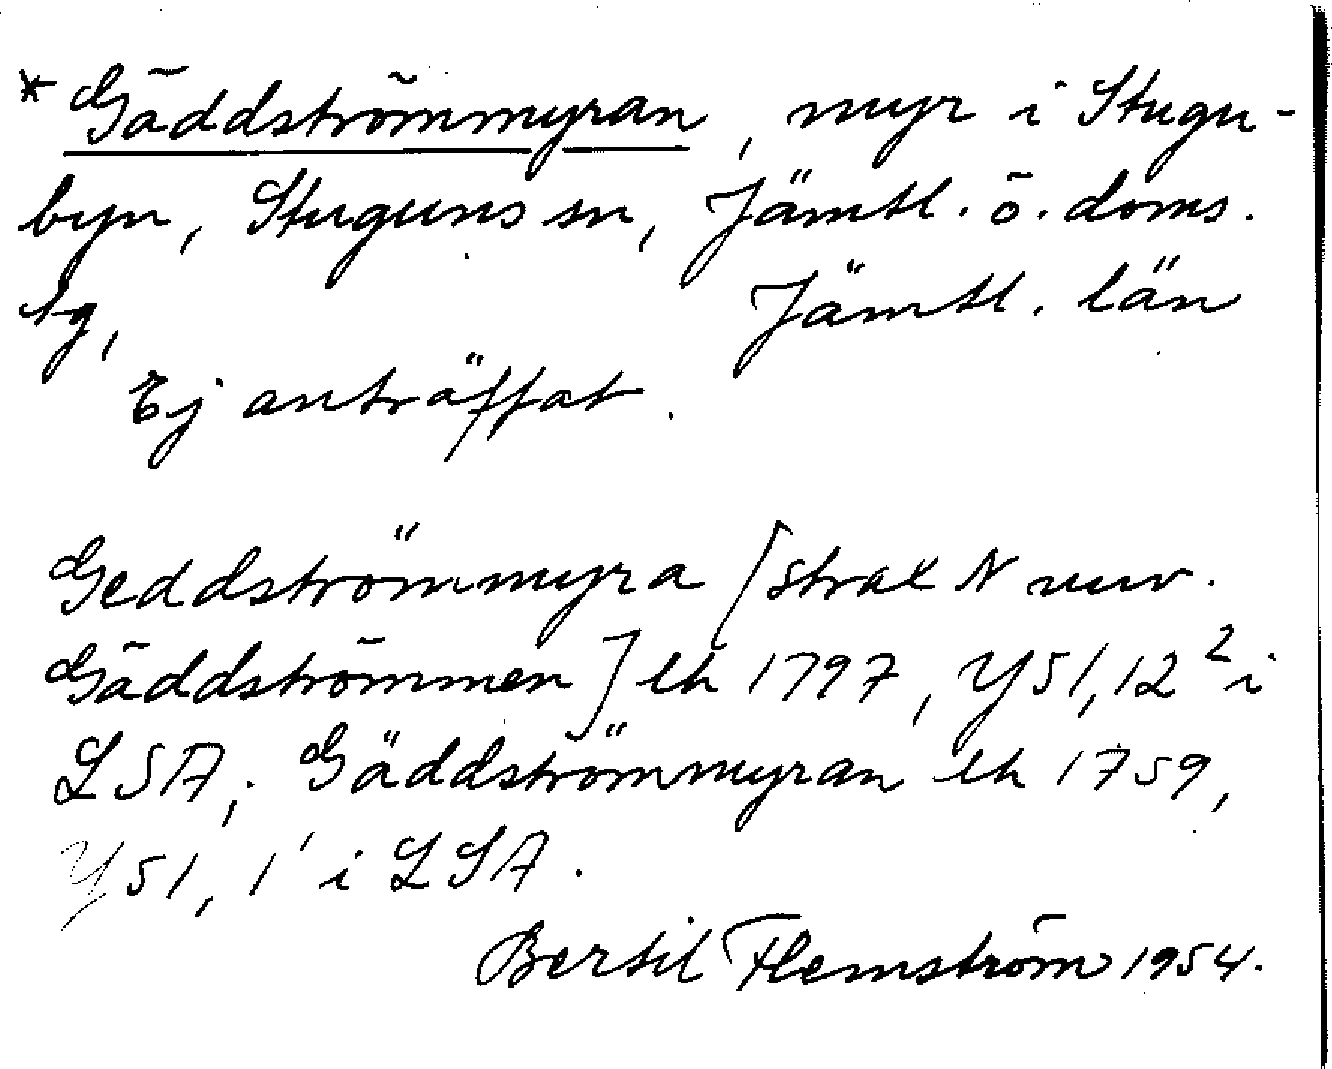 * Gäddströmmyran, myr i Stugu-
byn, Stuguns sn, Jämtl. ö. doms.
tg, Jämtl. län
Ej anträffat.
Geddströmmyra [strax N nuv.
Gäddströmmen] lh 1797, Y51, 12² i
LSA; Gäddströmmyran lh 1759,
Y51, 1' i LSA.
Bertil Flemström 1954.